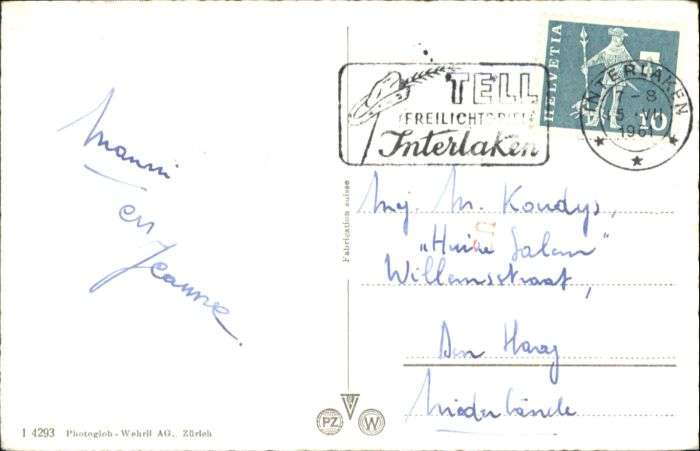 Manni
en
Jeanne.
TELL
FREILICHTSPIELE
Interlaken
HELVETIA
10
INTERLAKEN
7-8
5.VII
1961
Fabrication suisse
Mej. M. Kondys,
„Huize Salem"
Willemsstraat,
Den Haag
Niederlände
PZ W
I 4293 Photoglob-Wehrli AG., Zürich